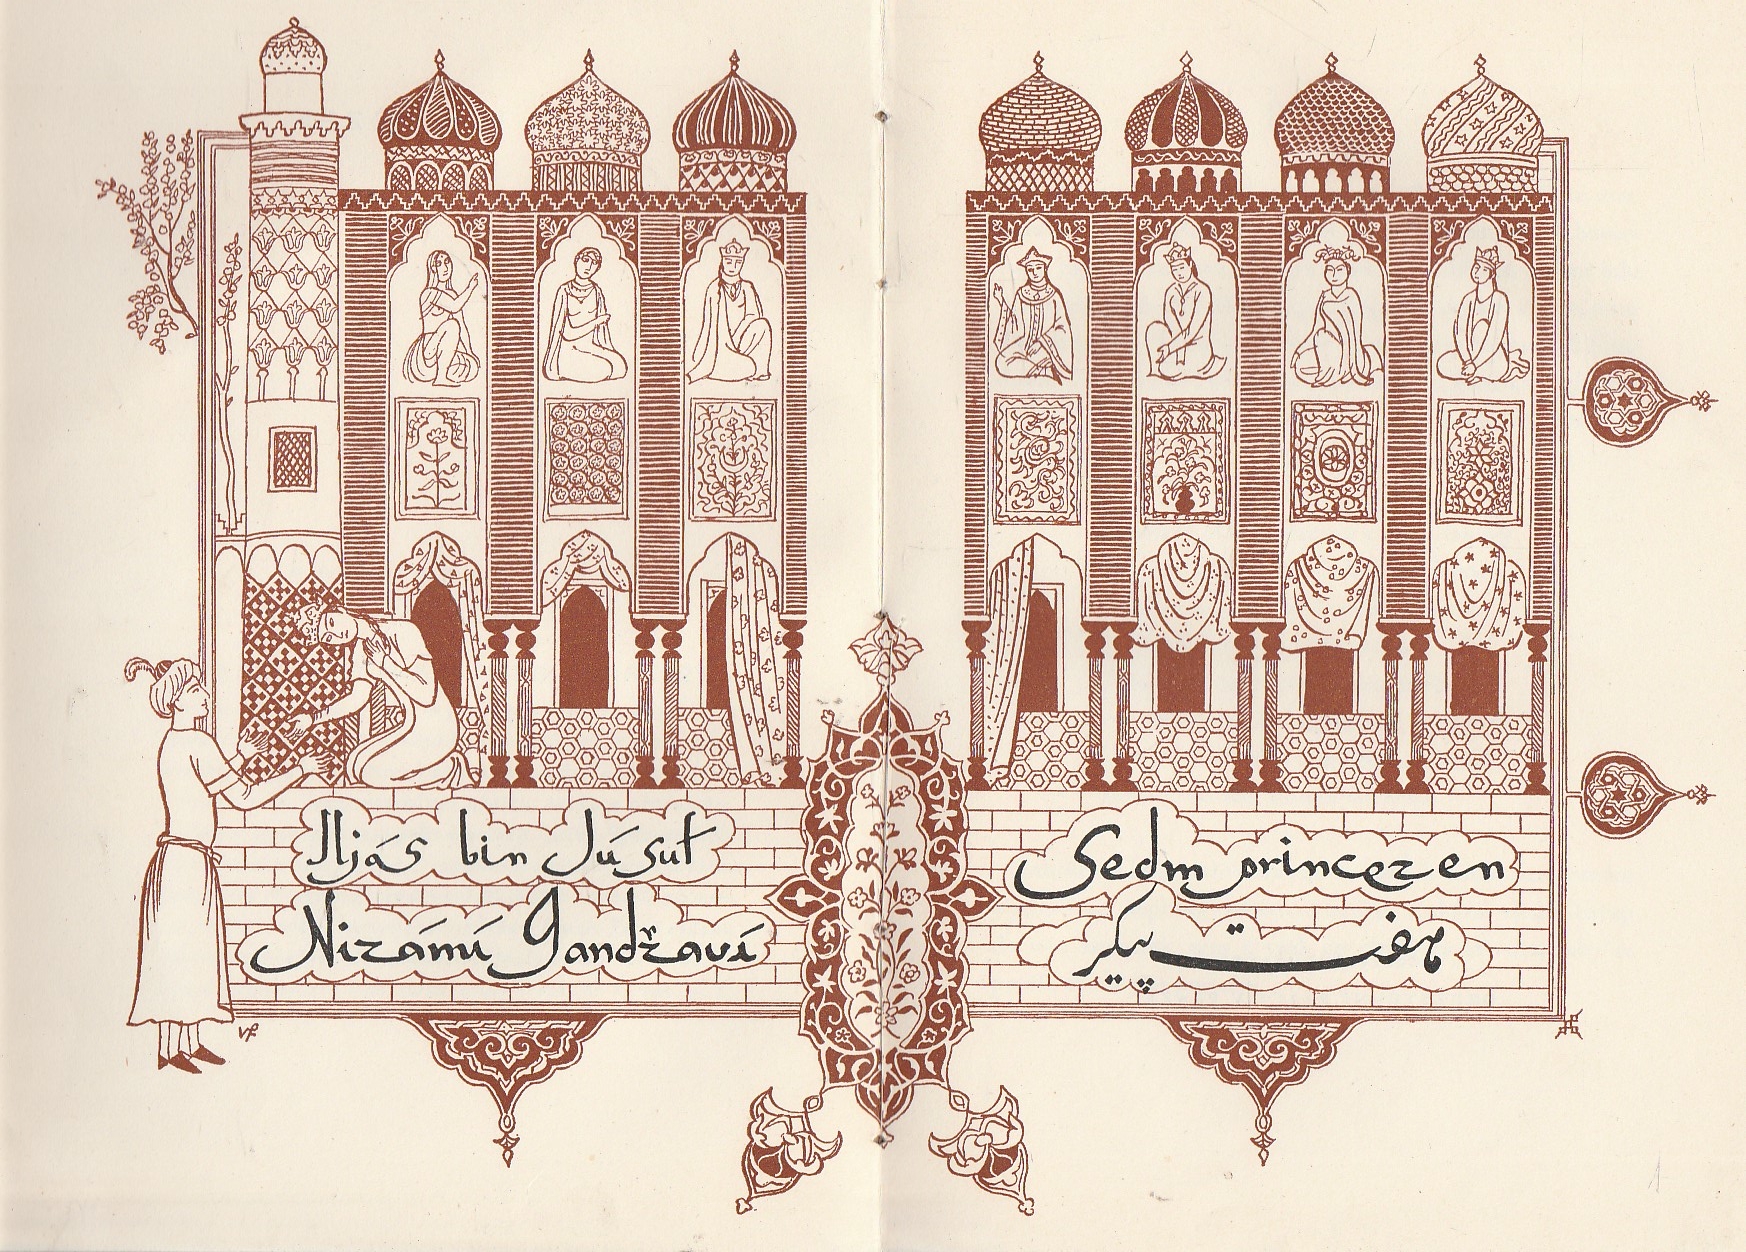 Iljás bin Júsuf
Nizámí Gandžaví
VF
Sedm princezen
هفت پیکر